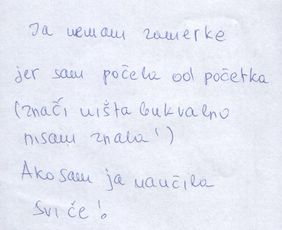 Ja nemam zamerke
jer sam počela od početka
(znači ništa bukvalno
nisam znala!)
Ako sam ja naučila
svi će!